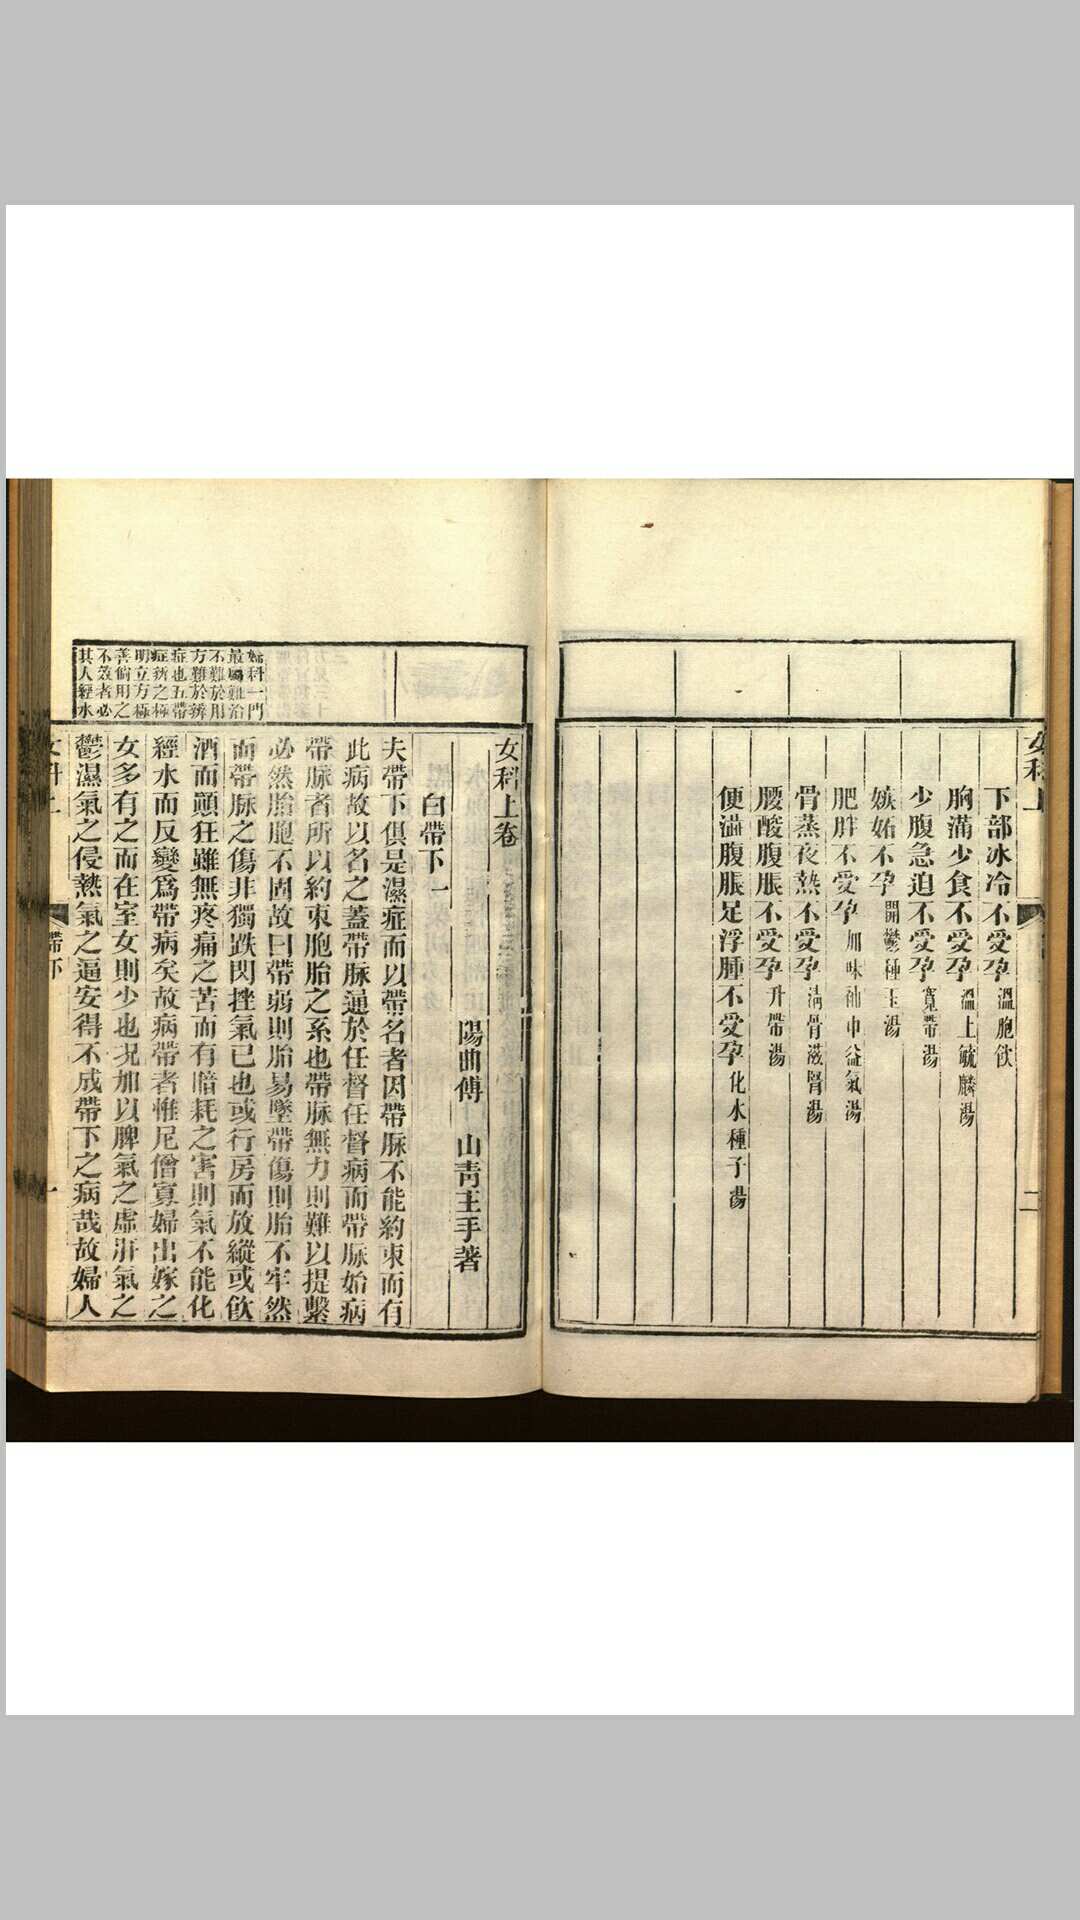 女科上
二
下部冰冷不受孕 溫胞飲
胸滿少食不受孕 溫土毓麟湯
少腹急迫不受孕 寬帶湯
嫉妬不孕 開鬱種玉湯
肥胖不受孕 加味補中益氣湯
骨蒸夜熱不受孕 淸骨滋腎湯
腰酸腹脹不受孕 升帶湯
便澁腹脹足浮腫不受孕 化水種子湯
婦科一門
最屬難治
不難於用
方難於辨
症也五帶
症辨之極
明立方極
善倘用之
不效者必
其人經水
女科上卷
陽曲傅 山靑主手著
白帶下一
夫帶下俱是濕症而以帶名者因帶脉不能約束而有
此病故以名之蓋帶脉通於任督任督病而帶脉始病
帶脉者所以約束胞胎之系也帶脉無力則難以提繫
必然胎胞不固故曰帶弱則胎易墜帶傷則胎不牢然
而帶脉之傷非獨跌閃挫氣已也或行房而放縱或飮
酒而顚狂雖無疼痛之苦而有暗耗之害則氣不能化
經水而反變爲帶病矣故病帶者惟尼僧寡婦出嫁之
女多有之而在室女則少也况加以脾氣之虛肝氣之
鬱濕氣之侵熱氣之逼安得不成帶下之病哉故婦人
女科上
帶下
一